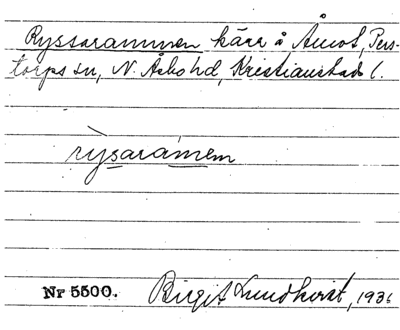 Ryssarammen kärr å Åmot, Pers-
torps sn, N. Åsbo hd, Kristianstads l.
rỳsarámem
Nr 5500. Birgit Lundkvist, 1936